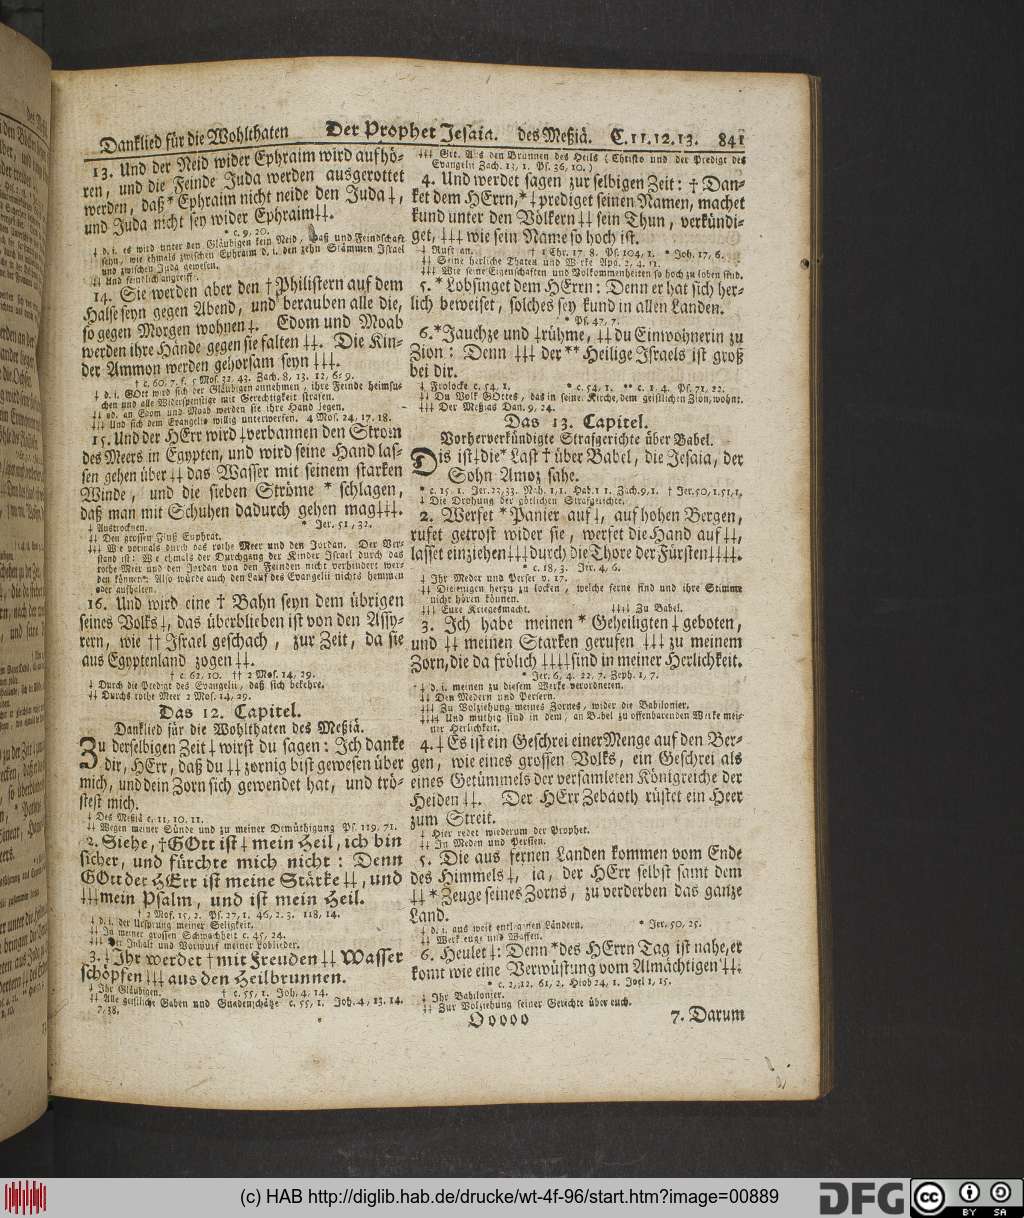 Danklied für die Wohlthaten Der Prophet Jesaia. des Meßiä. C. 11. 12. 13. 841
13. Und der Neid wider Ephraim wird aufhö-
ren, und die Feinde Juda werden ausgerottet
werden, daß * Ephraim nicht neide den Juda ‡,
und Juda nicht sey wider Ephraim ‡‡.
* c. 9, 20.
‡ d. i. es wird unter den Gläubigen kein Neid, Haß und Feindschaft
seyn, wie ehmals zwischen Ephraim d. i. den zehn Stämmen Israel
und zwischen Juda gewesen.
‡‡ Und feindlich angreiffe.
14. Sie werden aber den † Philistern auf dem
Halse seyn gegen Abend, und berauben alle die,
so gegen Morgen wohnen ‡. Edom und Moab
werden ihre Hände gegen sie falten ‡‡. Die Kin-
der Ammon werden gehorsam seyn ‡‡‡.
† c. 60, 7. s. 5 Mos. 32, 43. Zach. 8, 13. 12, 6. 9.
‡ d. i. GOtt wird sich der Gläubigen annehmen, ihre Feinde heimsu-
chen und alle Widerspenstige mit Gerechtigkeit strafen.
‡‡ od. an Edom und Moab werden sie ihre Hand legen.
‡‡‡ Und sich dem Evangelio willig unterwerfen. 4 Mos. 24, 17. 18.
15. Und der HErr wird ‡ verbannen den Strom
des Meers in Egypten, und wird seine Hand las-
sen gehen über ‡‡ das Wasser mit seinem starken
Winde, und die sieben Ströme * schlagen,
daß man mit Schuhen dadurch gehen mag ‡‡‡.
‡ Austrocknen. * Jer. 51, 32.
‡‡ Den grossen Fluß Euphrat.
‡‡‡ Wie vormals durch das rothe Meer und den Jordan. Der Ver-
stand ist: Wie ehmals der Durchgang der Kinder Israel durch das
rothe Meer und den Jordan von den Feinden nicht verhindert wer-
den können: Also würde auch den Lauf des Evangelii nichts hemmen
oder aufhalten.
16. Und wird eine † Bahn seyn dem übrigen
seines Volks ‡, das überblieben ist von den Assy-
rern, wie †† Israel geschach, zur Zeit, da sie
aus Egyptenland zogen ‡‡.
† c. 62, 10. †† 2 Mos. 14, 29.
‡ Durch die Predigt des Evangelii, daß sich bekehre.
‡‡ Durchs rothe Meer 2 Mos. 14, 29.
Das 12. Capitel.
Danklied für die Wohlthaten des Meßiä.
Zu derselbigen Zeit ‡ wirst du sagen: Ich danke
dir, HErr, daß du ‡‡ zornig bist gewesen über
mich, und dein Zorn sich gewendet hat, und trö-
stest mich.
‡ Des Meßiä c. 11, 10. 11.
‡‡ Wegen meiner Sünde und zu meiner Demüthigung Ps. 119, 71.
2. Siehe, † GOtt ist ‡ mein Heil, ich bin
sicher, und fürchte mich nicht: Denn
GOtt der HErr ist meine Stärke ‡‡, und
‡‡‡ mein Psalm, und ist mein Heil.
† 2 Mos. 15, 2. Ps. 27, 1. 46, 2. 3. 118, 14.
‡ d. i. der Ursprung meiner Seligkeit.
‡‡ In meiner grossen Schwachheit c. 45, 24.
‡‡‡ Der Inhalt und Vorwurf meiner Loblieder.
3. ‡ Ihr werdet † mit Freuden ‡‡ Wasser
schöpfen ‡‡‡ aus den Heilbrunnen.
‡ Ihr Gläubigen. † c. 55, 1. Joh. 4, 14.
‡‡ Alle geistliche Gaben und Gnadenschätze c. 55, 1. Joh. 4, 13. 14.
7, 38.
‡‡‡ Git. Aus den Brunnen des Heils (Christo und der Predigt des
Evangelii Zach. 13, 1. Ps. 36, 10.)
4. Und werdet sagen zur selbigen Zeit: † Dan-
ket dem HErrn, * ‡ prediget seinen Namen, machet
kund unter den Völkern ‡‡ sein Thun, verkündi-
get, ‡‡‡ wie sein Name so hoch ist.
‡ Ruft an. † 1 Chr. 17, 8. Ps. 104, 1. * Joh. 17, 6.
‡‡ Seine herliche Thaten und Werke Apg. 2, 4. 11.
‡‡‡ Wie seine Eigenschaften und Volkommenheiten so hoch zu loben sind.
5. * Lobsinget dem HErrn: Denn er hat sich her-
lich beweiset, solches sey kund in allen Landen.
* Ps. 47, 7.
6. * Jauchze und ‡ rühme, ‡‡ du Einwohnerin zu
Zion: Denn ‡‡‡ der ** Heilige Israels ist groß
bei dir.
‡ Frolocke c. 54, 1. * c. 54, 1. ** c. 1, 4. Ps. 71, 22.
‡‡ Du Volk GOttes, das in seiner Kirche, dem geistlichen Zion, wohnt.
‡‡‡ Der Meßias Dan. 9, 24.
Das 13. Capitel.
Vorherverkündigte Strafgerichte über Babel.
Dis ist ‡ die * Last † über Babel, die Jesaia, der
Sohn Amoz sahe.
* c. 15, 1. Jer. 23, 33. Nah. 1, 1. Hab. 1, 1. Zach. 9, 1. † Jer. 50, 1. 51, 1.
‡ Die Drohung der götlichen Strafgerichte.
2. Werfet * Panier auf ‡, auf hohen Bergen,
rufet getrost wider sie, werfet die Hand auf ‡‡,
lasset einziehen ‡‡‡ durch die Thore der Fürsten ‡‡‡‡.
* c. 18, 3. Jer. 4, 6.
‡ Ihr Meder und Perser v. 17.
‡‡ Diejenigen herzu zu locken, welche ferne sind und ihre Stimme
nicht hören können.
‡‡‡ Eure Kriegesmacht. ‡‡‡‡ Zu Babel.
3. Ich habe meinen * Geheiligten ‡ geboten,
und ‡‡ meinen Starken gerufen ‡‡‡ zu meinem
Zorn, die da frölich ‡‡‡‡ sind in meiner Herlichkeit.
* Jer. 6, 4. 22, 7. Zeph. 1, 7.
‡ d. i. meinen zu diesem Werke verordneten.
‡‡ Den Medern und Persern.
‡‡‡ Zu Volziehung meines Zornes, wider die Babilonier.
‡‡‡‡ Und muthig sind in dem, an Babel zu offenbarenden Werke mei-
ner Herlichkeit.
4. ‡ Es ist ein Geschrei einer Menge auf den Ber-
gen, wie eines grossen Volks, ein Geschrei als
eines Getümmels der versamleten Königreiche der
Heiden ‡‡. Der HErr Zebaoth rüstet ein Heer
zum Streit.
‡ Hier redet wiederum der Prophet.
‡‡ In Meden und Persien.
5. Die aus fernen Landen kommen vom Ende
des Himmels ‡, ia, der HErr selbst samt dem
‡‡ * Zeuge seines Zorns, zu verderben das ganze
Land.
‡ d. i. aus weit entlegenen Ländern. * Jer. 50, 25.
‡‡ Werkzeuge und Waffen.
6. Heulet ‡: Denn * des HErrn Tag ist nahe, er
komt wie eine Verwüstung vom Almächtigen ‡‡.
* c. 2, 12. 61, 2. Hiob 24, 1. Joel 1, 15.
‡ Ihr Babilonier.
‡‡ Zur Volziehung seiner Gerichte über euch.
Ooooo 7. Darum
(c) HAB http://diglib.hab.de/drucke/wt-4f-96/start.htm?image=00889
DFG
cc BY SA